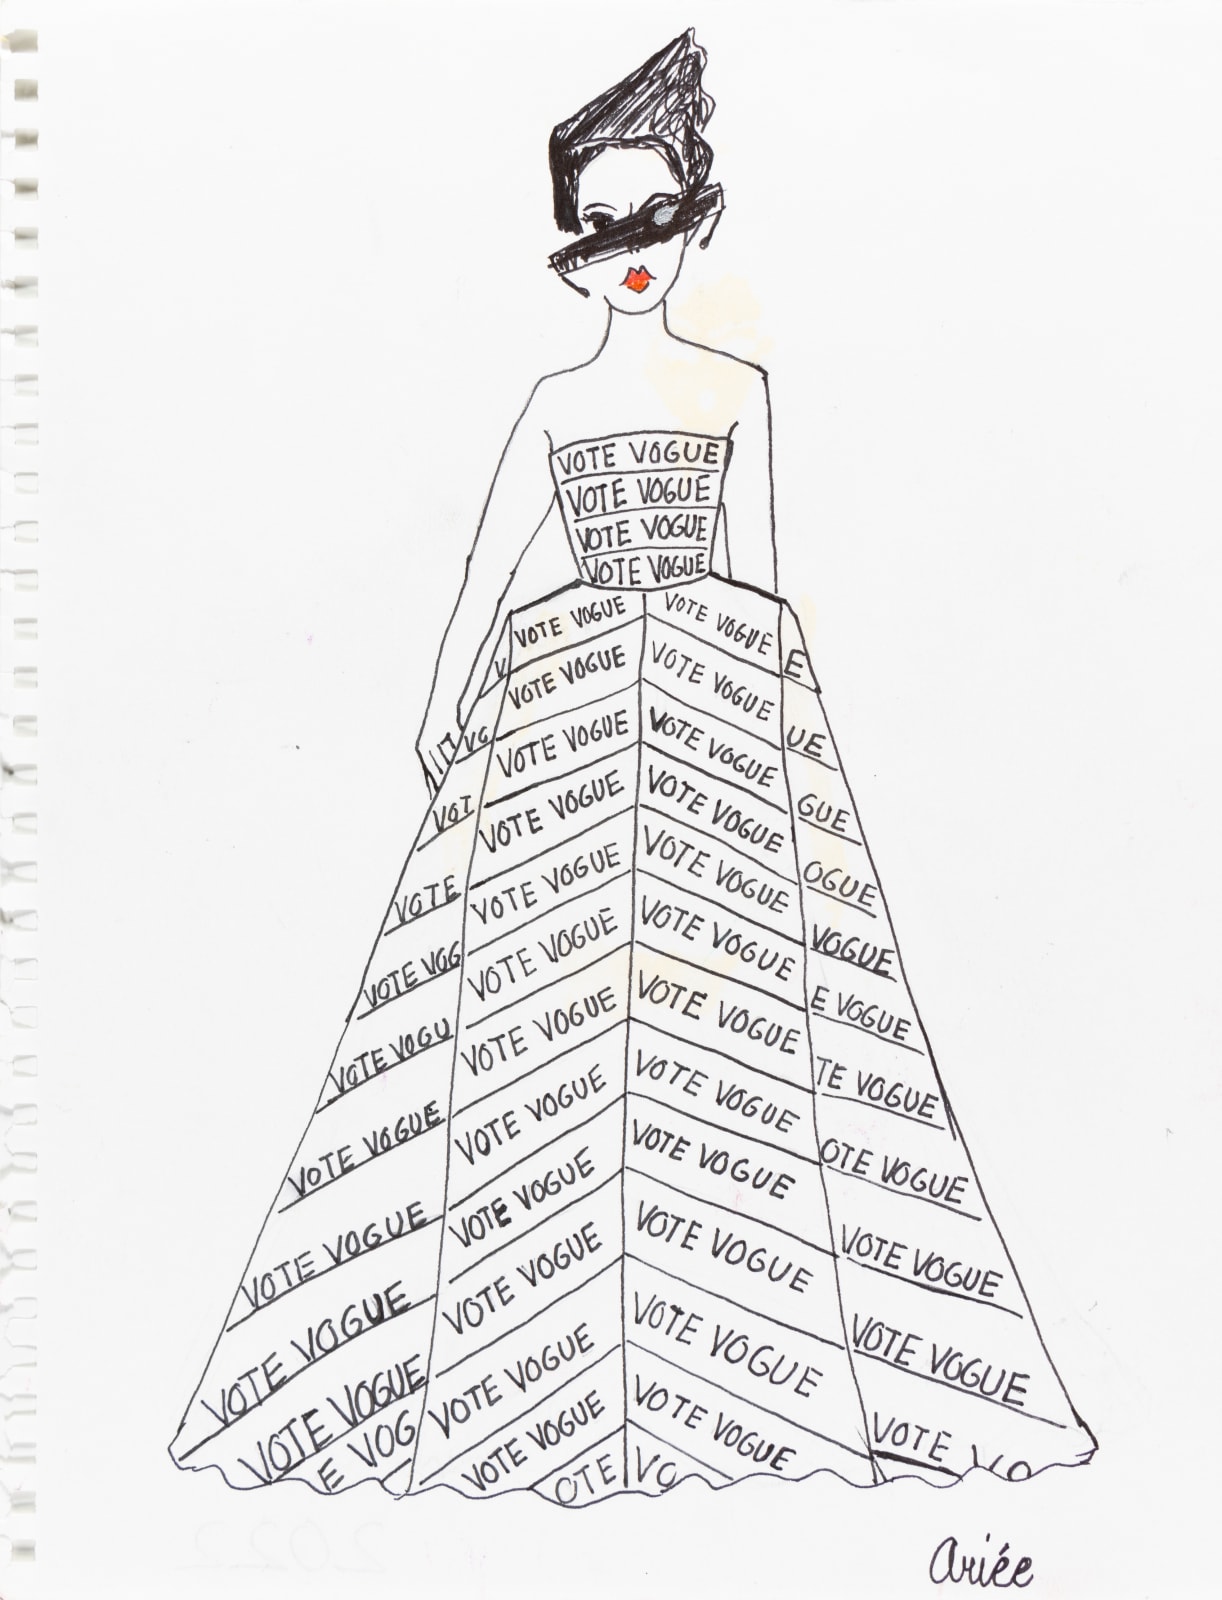 VOTE VOGUE
VOTE VOGUE
VOTE VOGUE
VOTE VOGUE
V
VG
VOT
VOTE
VOTE VOG
VOTE VOGU
VOTE VOGUE
VOTE VOGUE
VOTE VOGUE
VOTE VOGUE
E VOG
VOTE VOGUE
VOTE VOGUE
VOTE VOGUE
VOTE VOGUE
VOTE VOGUE
VOTE VOGUE
VOTE VOGUE
VOTE VOGUE
VOTE VOGUE
VOTE VOGUE
VOTE VOGUE
VOTE VOGUE
OTE
VOTE VOGUE
VOTE VOGUE
VOTE VOGUE
VOTE VOGUE
VOTE VOGUE
VOTE VOGUE
VOTE VOGUE
VOTE VOGUE
VOTE VOGUE
VOTE VOGUE
VOTE VOGUE
VOTE VOGUE
VO
E
UE
GUE
OGUE
VOGUE
E VOGUE
TE VOGUE
OTE VOGUE
VOTE VOGUE
VOTE VOGUE
VOTE VO
Ariée